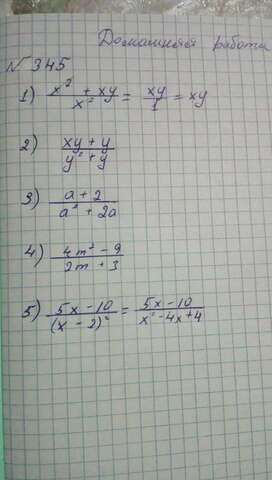 Домашняя работа
№345
1) (x² + xy)/x² = xy/1 = xy
2) (xy + y)/(y² + y)
3) (a + 2)/(a² + 2a)
4) (4m² - 9)/(2m + 3)
5) (5x - 10)/(x - 2)² = (5x - 10)/(x² - 4x + 4)